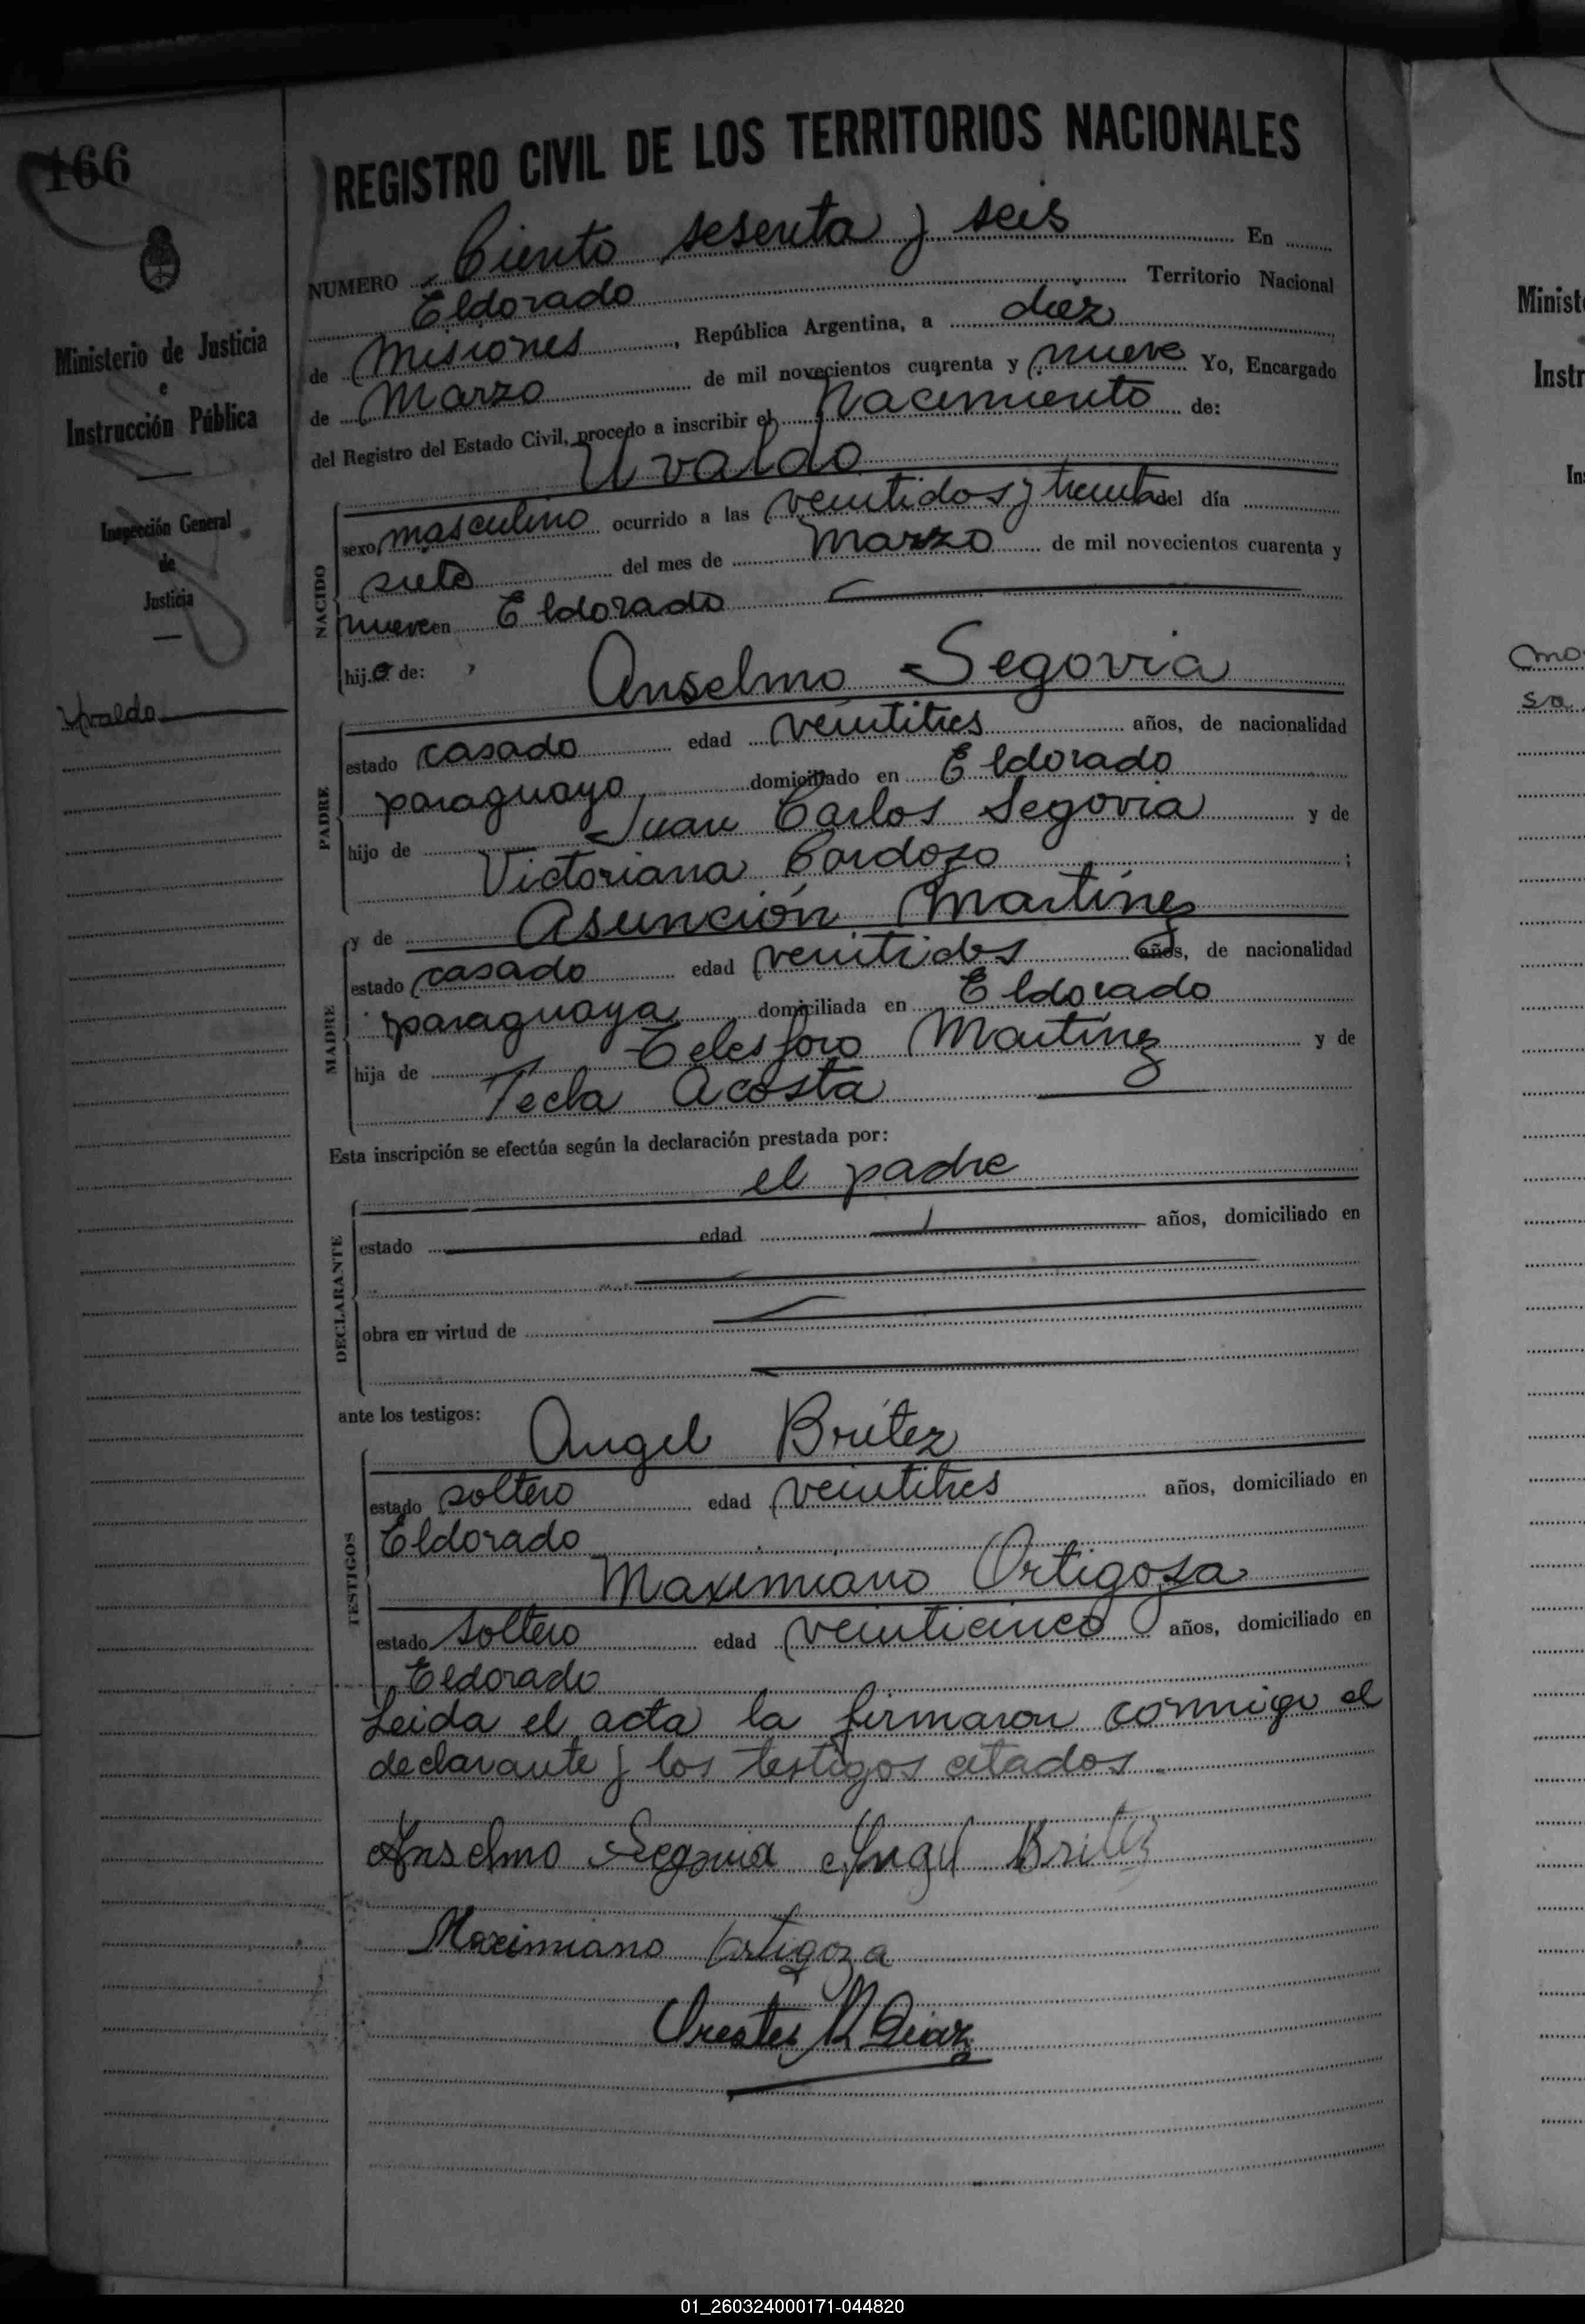 166
Ministerio de Justicia
e
Instrucción Pública
Inspección General
de
Justicia
Uvaldo
REGISTRO CIVIL DE LOS TERRITORIOS NACIONALES
NUMERO Ciento sesenta y seis En
Eldorado Territorio Nacional
de Misiones, República Argentina, a diez
de Marzo de mil novecientos cuarenta y nueve Yo, Encargado
del Registro del Estado Civil, procedo a inscribir el Nacimiento de:
Uvaldo
NACIDO
sexo masculino ocurrido a las veintidos y treinta del día
siete del mes de Marzo de mil novecientos cuarenta y
nueve en Eldorado
hijo de:
Anselmo Segovia
PADRE
estado casado edad veintitres años, de nacionalidad
paraguayo domiciliado en Eldorado
hijo de Juan Carlos Segovia y de
Victoriana Cardozo ;
y de Asunción Martínez
MADRE
estado casado edad veintidos años, de nacionalidad
paraguaya domiciliada en Eldorado
hija de Telesforo Martínez y de
Tecla Acosta
Esta inscripción se efectúa según la declaración prestada por:
el padre
DECLARANTE
estado edad años, domiciliado en
obra en virtud de
ante los testigos:
Angel Britez
TESTIGOS
estado soltero edad veintitres años, domiciliado en
Eldorado
Maximiano Ortigoza
estado soltero edad veinticinco años, domiciliado en
Eldorado
Leida el acta la firmaron conmigo el
declarante y los testigos citados.
Anselmo Segovia Angel Britez
Maximiano Ortigoza
Orestes R Diaz
Minist
Instr
In
mo
sa
01_260324000171-044820